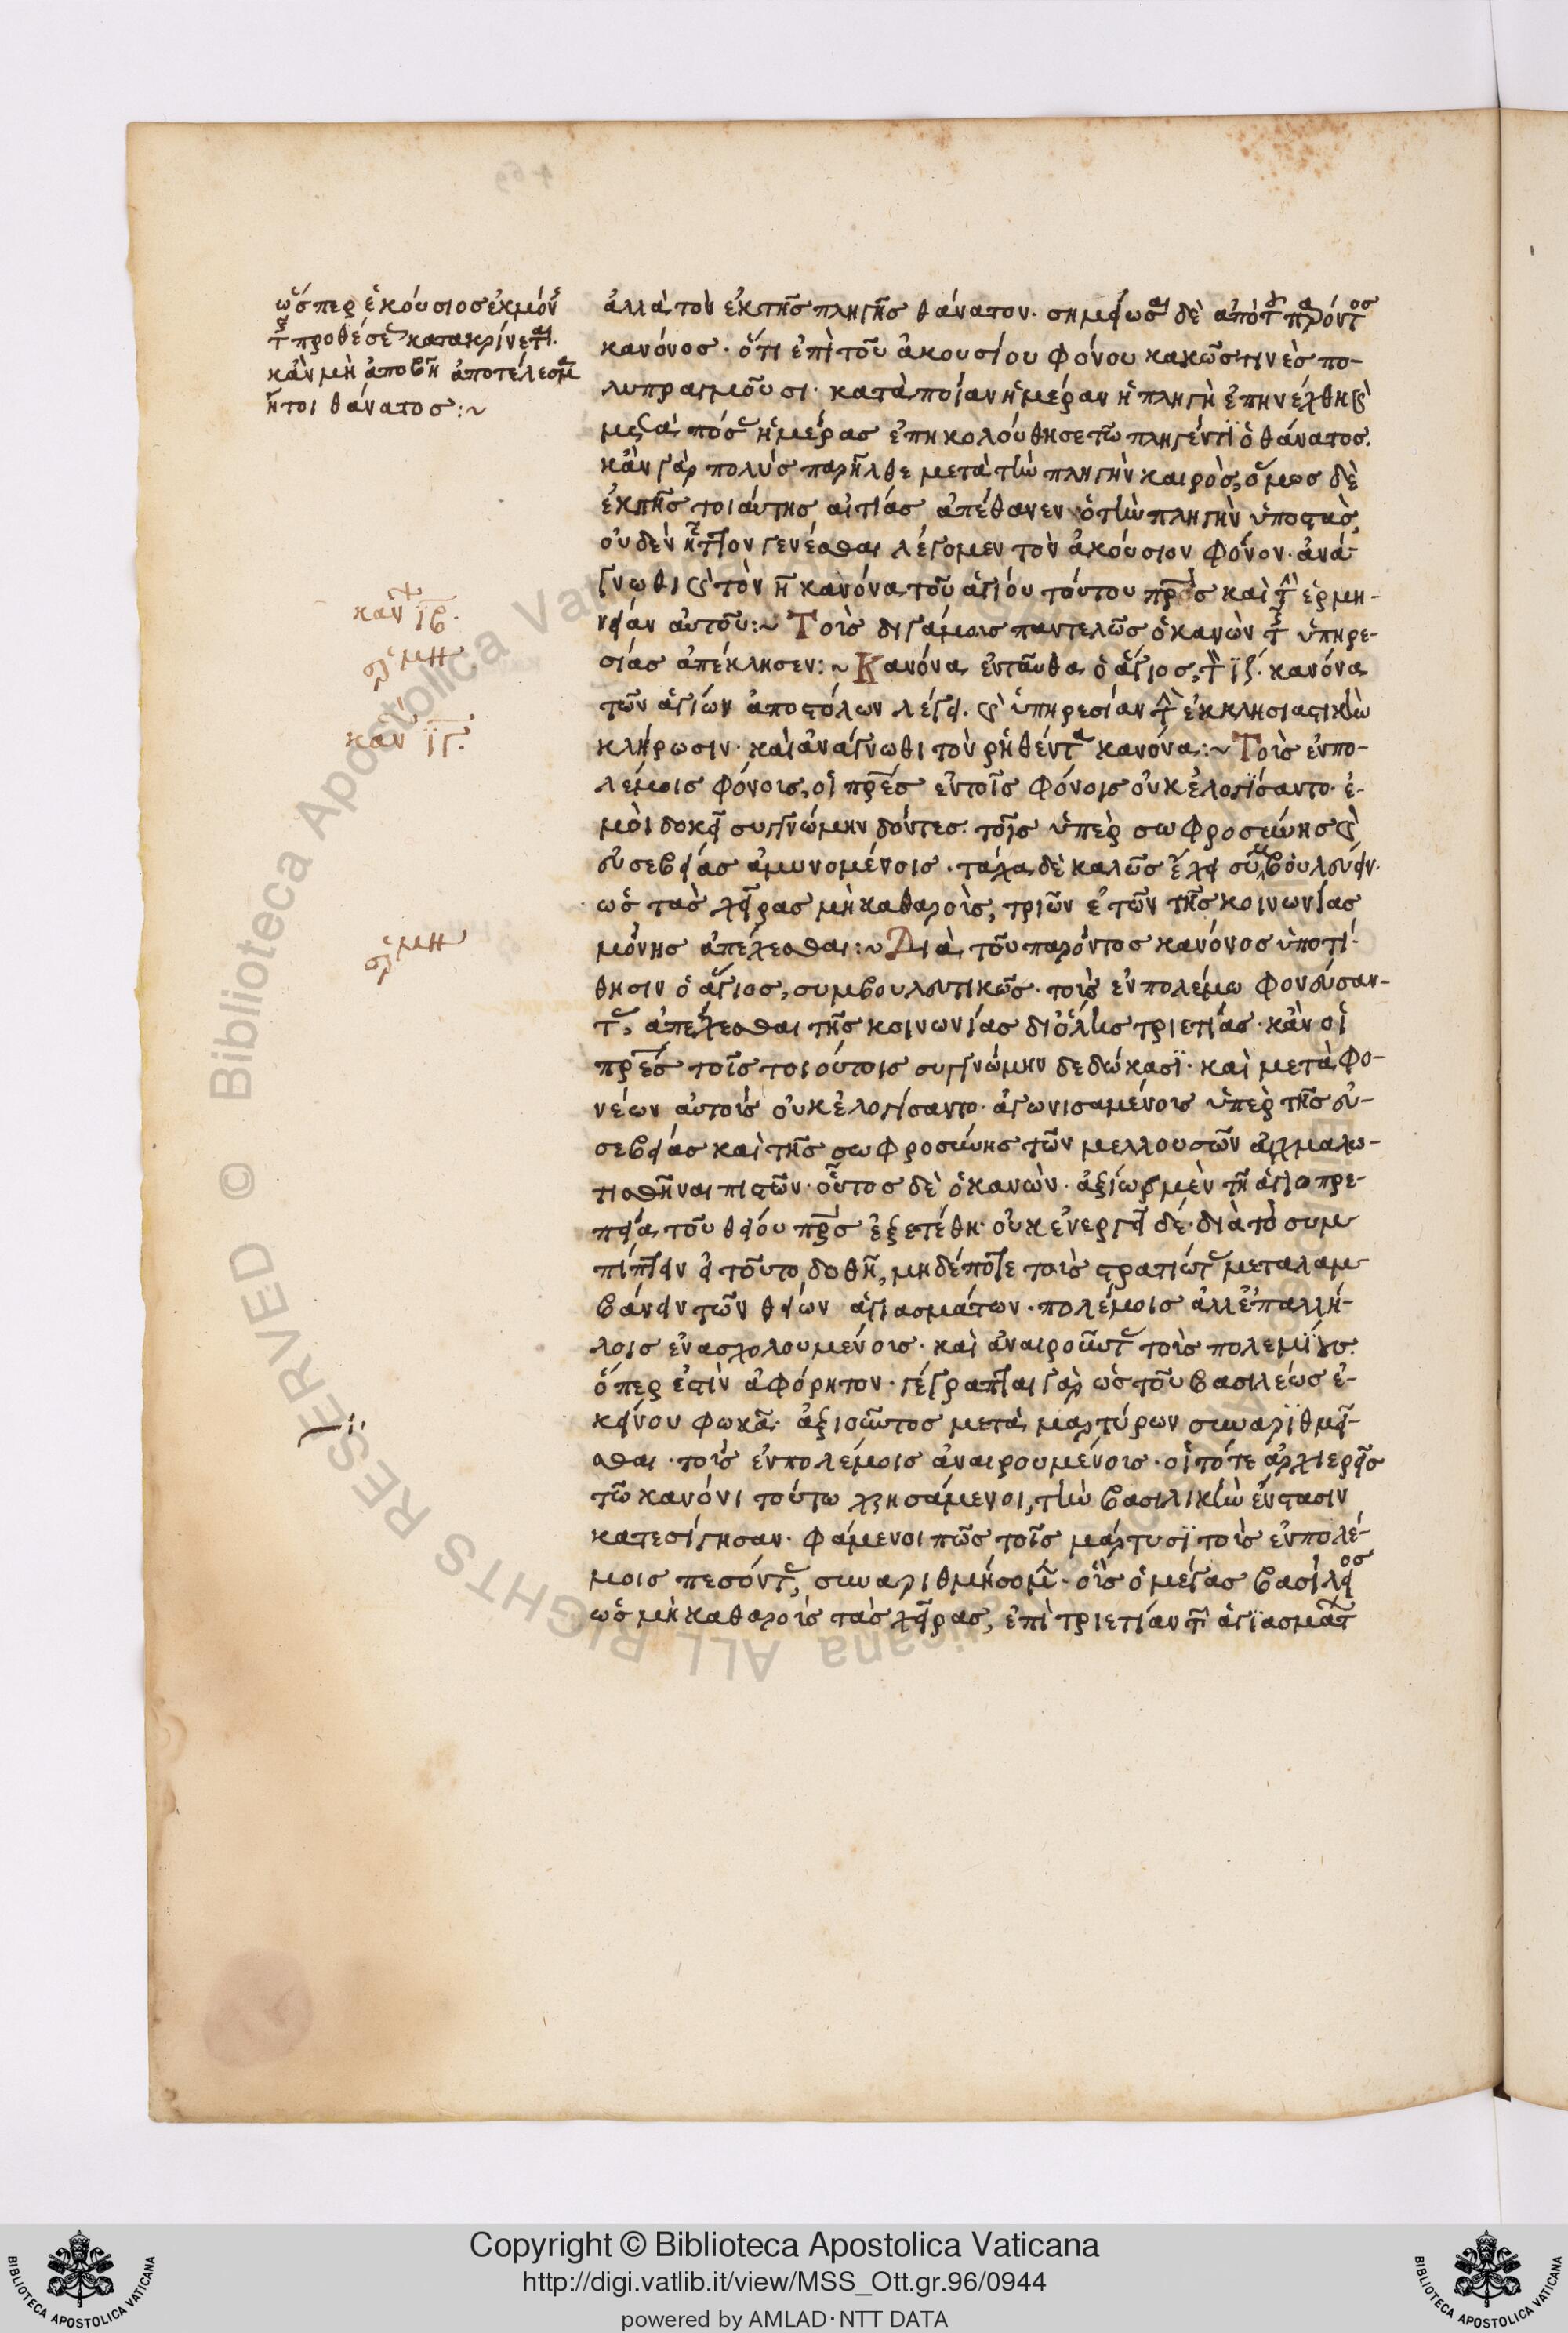 469
ὥσπερ ἑκούσιος ἐκ μόν
τ προθέσε κατακρίνεται.
κἂν μὴ ἀποβῆ ἀποτέλεσμ
ἤτοι θάνατος :~
καν ιβ.
ἑρμη
καν ιγ.
ἑρμη
ἀλλὰ τὸν ἐκ τῆς πληγῆς θάνατον. σημείωσαι δὲ ἀπὸ τ παρόντος
κανόνος. ὅτι ἐπὶ τοῦ ἀκουσίου φόνου κακῶς τινὲς πο-
λυπραγμοῦσι. κατὰ ποίαν ἡμέραν ἡ πληγὴ ἐπηνέχθη ϛ
μετὰ πόσ ἡμέρας ἐπηκολούθησε τῶ πληγέντϊ ὁ θάνατος.
κἂν γὰρ πολὺς παρῆλθε μετὰ τὴν πληγὴν καιρὸς, ὅμως δὲ
ἐκ τῆς τοιαύτης αἰτίας ἀπέθανεν ὁ τὴν πληγὴν ὑποστὰς,
οὐδὲν ἧττον γενέσθαι λέγομεν τὸν ἀκούσιον φόνον. ἀνά-
γνωθι ϛ τὸν η κανόνα τοῦ ἁγίου τούτου πρς καὶ τ ἑρμη-
νείαν αὐτοῦ :~ Τοὺς διγάμους παντελῶς ὁ κανὼν τ ὑπηρε-
σίας ἀπέκλησεν :~ Κανόνα ἐνταῦθα ὁ ἅγιος, τ ιζ. κανόνα
τῶν ἁγίων ἀποστόλων λέγει. ϛ ὑπηρεσίαν τ ἐκκλησιαστικὴν
κλήρωσιν. καὶ ἀνάγνωθι τὸν ῥηθέντα κανόνα :~ Τοὺς ἐν πο-
λέμοις φόνους, οἱ πρες ἐν τοῖς φόνοις οὐκ ἐλογΐσαντο. ἐ-
μοὶ δοκεῖ συγγνώμην δόντες. τοῖς ὑπὲρ σωφροσύνης ϛ
εὐσεβείας ἀμυνομένοις. τάχα δὲ καλῶς ἔχει συμβουλεύειν.
ὡς τὰς χεῖρας μὴ καθαροὺς, τριῶν ἐτῶν τῆς κοινωνίας
μόνης ἀπέχεσθαι :~ Διὰ τοῦ παρόντος κανόνος ὑποτί-
θησιν ὁ ἅγιος, συμβουλευτικῶς. τοὺς ἐν πολέμω φονεύσαν-
τ, ἀπέχεσθαι τῆς κοινωνίας δι ὅλης τριετίας. κἂν οἱ
πρες τοῖς τοιούτοις συγγνώμην δεδώκασϊ. καὶ μετὰ φο-
νέων αὐτοὺς οὐκ ἐλογίσαντο. ἀγωνισαμένους ὑπὲρ τῆς εὐ-
σεβείας καὶ τῆς σωφροσύνης τῶν μελλουσῶν αἰχμαλω-
τισθῆναι πιστῶν. οὗτος δὲ ὁ κανὼν. ἀξίως μὲν τῆ ἁγιοπρε-
πεία τοῦ θείου πρς ἐξετέθη. οὐκ ἐνεργεῖ δέ. διὰ τὸ συμ
πίπτειν εἰ τοῦτο δοθῆ, μηδέποτε τοὺς στρατιώτ μεταλαμ
βάνειν τῶν θείων ἁγιασμάτων. πολέμοις ἀλλεπαλλή-
λοις ἐνασχολουμένους. καὶ ἀναιροῦντ τοὺς πολεμϊους.
ὅπερ ἐστὶν ἀφόρητον. γέγραπται γὰρ ὡς τοῦ βασιλέως ἐ-
κείνου φωκᾶ. ἀξιοῦντος μετὰ μαρτύρων συναρϊθμεῖ-
σθαι. τοὺς ἐν πολέμοις ἀναιρουμένους. οἱ τότε ἀρχιερεῖς
τῶ κανόνι τούτω χρησάμενοι, τὴν βασιλικὴν ἔνστασιν
κατεσίγησαν. φάμενοι πῶς τοῖς μάρτυσϊ τοὺς ἐν πολέ-
μοις πεσόντ, συναριθμήσομ. οὓς ὁ μέγας βασίλειος
ὡς μὴ καθαροὺς τὰς χεῖρας, ἐπὶ τριετίαν τ ἁγϊασμάτ
© Biblioteca Apostolica Vaticana ALL RIGHTS RESERVED
Copyright © Biblioteca Apostolica Vaticana
http://digi.vatlib.it/view/MSS_Ott.gr.96/0944
powered by AMLAD·NTT DATA
BIBLIOTECA APOSTOLICA VATICANA
BIBLIOTECA APOSTOLICA VATICANA